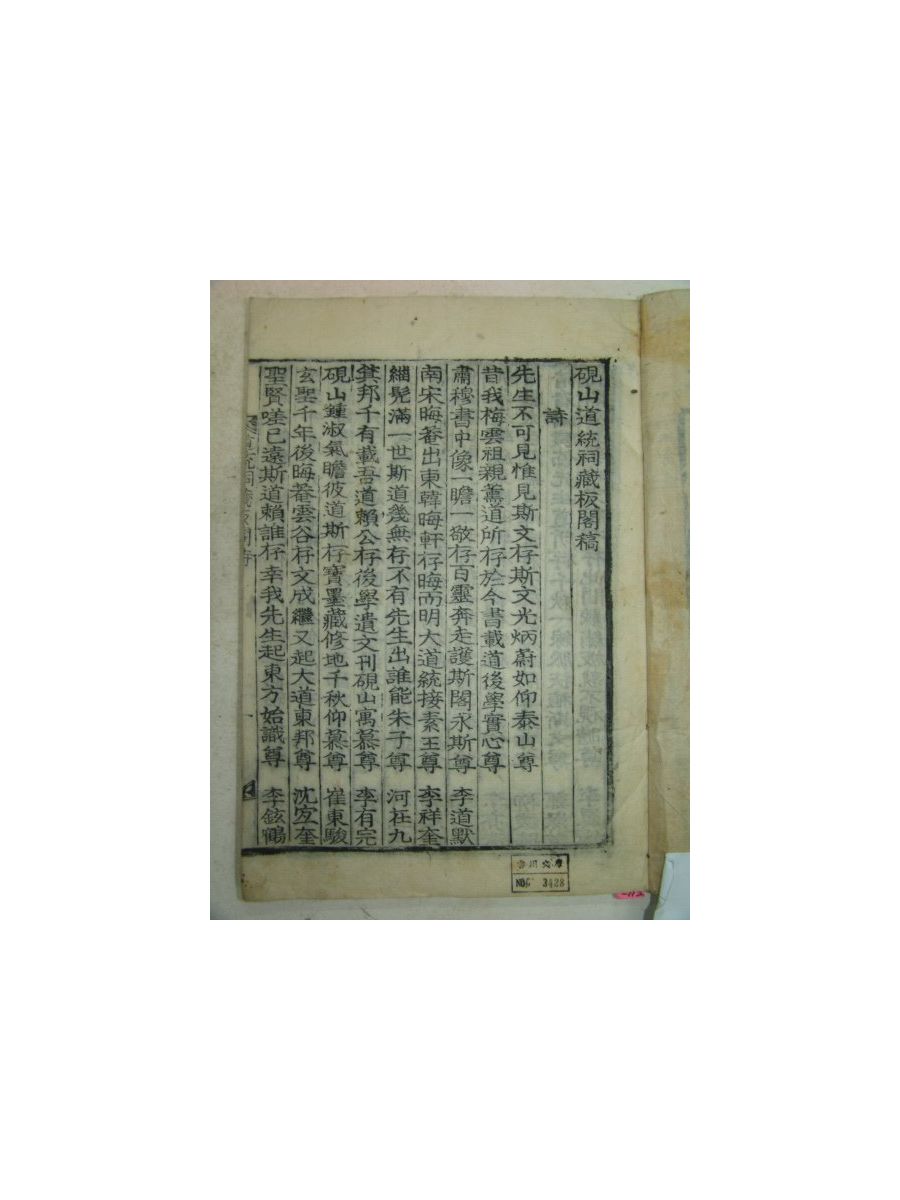 硯山道統祠藏板閣稿
詩
先生不可見惟見斯文存斯文光炳蔚如仰泰山尊
昔我梅雲祖親薰道所存於今書載道後學實心尊
肅穆書中像一瞻一敬存百靈奔走護斯閣永斯尊 李道默
南宋晦菴出東韓晦軒存晦而明大道統接素王尊 李祥奎
緇髡滿一世斯道幾無存不有先生出誰能朱子尊 河在九
箕邦千有載吾道賴公存後學遺文刊硯山寓慕尊 李有完
硯山鍾淑氣瞻彼道斯存寶墨藏修地千秋仰慕尊 崔東駿
玄聖千年後晦菴雲谷存文成繼又起大道東邦尊 沈宜奎
聖賢嗟已遠斯道賴誰存幸我先生起東方始識尊 李鉉鶴
一
文庫
NO. 3428